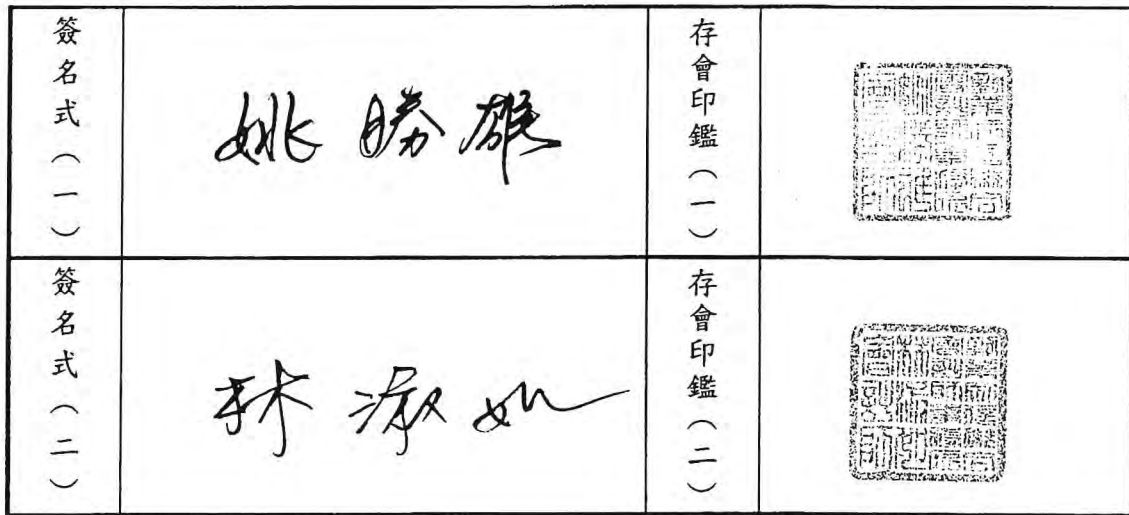 簽名式(一)
姚勝雄
存會印鑑(一)
簽名式(二)
林淑如
存會印鑑(二)